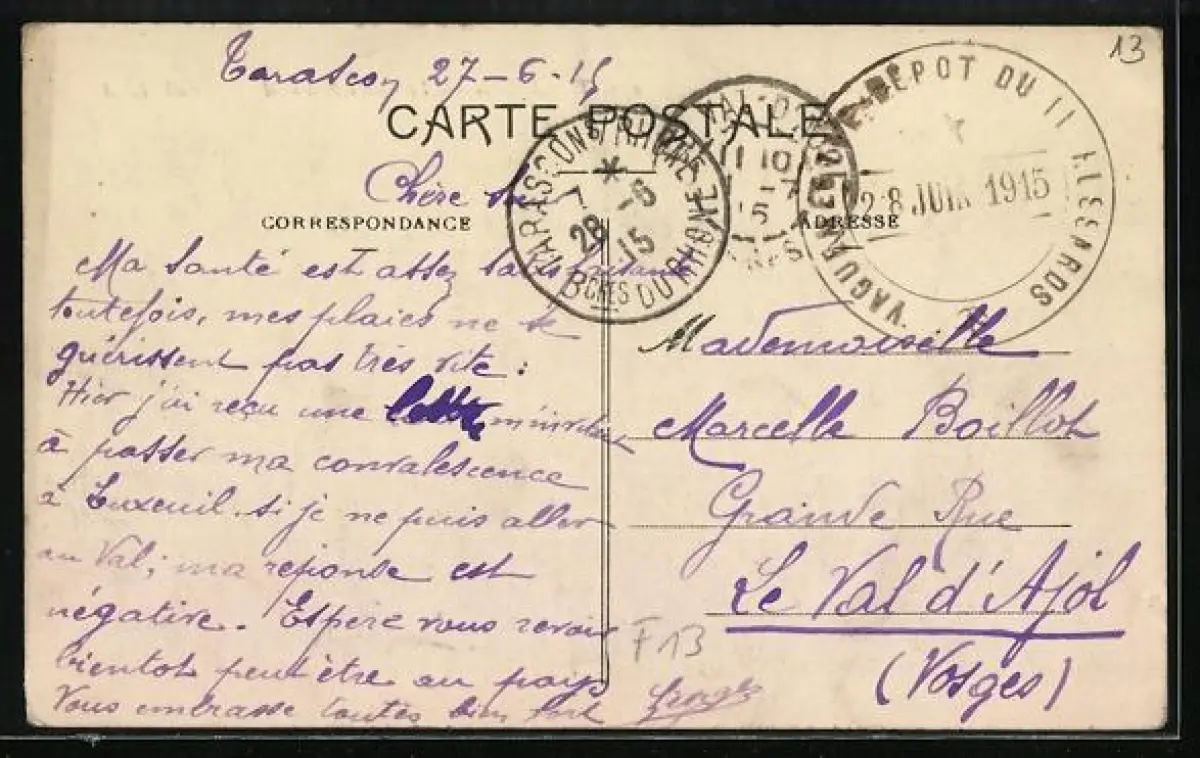 13
Tarascon 27-6-15
CARTE POSTALE
Chère
CORRESPONDANCE
ADRESSE
TARASCON S/ RHONE
7 * -6
28 15
BCHES DU RHONE
VAL-D'AJOL
11 10
VAGUEMESTRE DEPOT DU 11
28 JUIN 1915
Ma Santé est assez satisfaisante
toutefois, mes plaies ne se
guérissent pas très vite :
Hier j'ai reçu une lettre m'invitant
à passer ma convalescence
à Luxeuil. si je ne puis aller
au Val; ma réponse est
négative. Espere vous revoir
bientot peut être au pays
Vous embrasse toutes bien fort
Mademoiselle
Marcelle Boillot
Grande Rue
Le Val d'Ajol
(Vosges)
F13